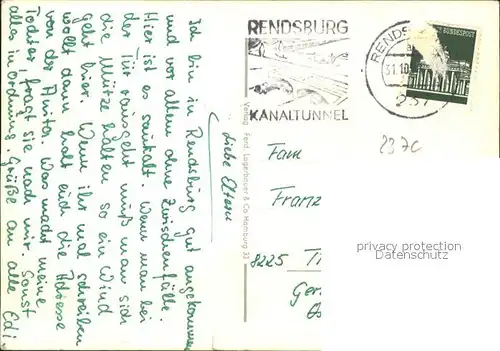 Liebe Eltern
Ich bin in Rendsburg gut angekommen
und vor allem ohne Zwischenfälle.
Hier ist es saukalt. Wenn man bei
der Tür rausgeht muß man sich
die Mütze halten so ein Wind
geht hier. Wenn ihr mal schreiben
wollt dann holt euch die Adresse
von der Anita. Was macht meine
Tochter, fragt sie nach mir. Sonst
alles in Ordnung. Grüße an alle Edi
Verlag Ferd. Lagerbauer & Co Hamburg 33
RENDSBURG
KANALTUNNEL
RENDS
31.10
237
BUNDESPOST
237C
Fam
Franz
8225
Ger
privacy protection
Datenschutz